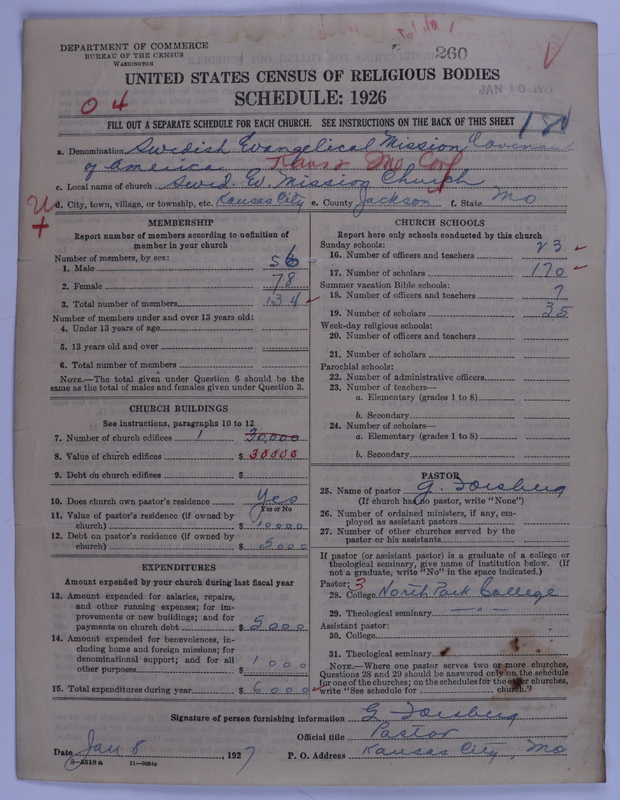 260
JAN 10 1927
DEPARTMENT OF COMMERCE
BUREAU OF THE CENSUS
WASHINGTON
UNITED STATES CENSUS OF RELIGIOUS BODIES
SCHEDULE: 1926
04
FILL OUT A SEPARATE SCHEDULE FOR EACH CHURCH. SEE INSTRUCTIONS ON THE BACK OF THIS SHEET
a. Denomination Swedish Evangelical Mission Covenant
of America
c. Local name of church Swed. Ev. Mission Church
d. City, town, village, or township, etc. Kansas City e. County Jackson f. State Mo
MEMBERSHIP
Report number of members according to definition of
member in your church
Number of members, by sex:
1. Male 56
2. Female 78
3. Total number of members 134
Number of members under and over 13 years old:
4. Under 13 years of age
5. 13 years old and over
6. Total number of members
NOTE.—The total given under Question 6 should be the
same as the total of males and females given under Question 3.
CHURCH BUILDINGS
See instructions, paragraphs 10 to 12
7. Number of church edifices 1 30,000
8. Value of church edifices $ 30000
9. Debt on church edifices $
10. Does church own pastor's residence Yes
Yes or No
11. Value of pastor's residence (if owned by
church) $ 10000
12. Debt on pastor's residence (if owned by
church) $ 5000
EXPENDITURES
Amount expended by your church during last fiscal year
13. Amount expended for salaries, repairs,
and other running expenses; for im-
provements or new buildings; and for
payments on church debt $ 5000
14. Amount expended for benevolences, in-
cluding home and foreign missions; for
denominational support; and for all
other purposes $ 1000
15. Total expenditures during year $ 6000
CHURCH SCHOOLS
Report here only schools conducted by this church
Sunday schools:
16. Number of officers and teachers 23
17. Number of scholars 170
Summer vacation Bible schools:
18. Number of officers and teachers 7
19. Number of scholars 35
Week-day religious schools:
20. Number of officers and teachers
21. Number of scholars
Parochial schools:
22. Number of administrative officers
23. Number of teachers—
a. Elementary (grades 1 to 8)
b. Secondary
24. Number of scholars—
a. Elementary (grades 1 to 8)
b. Secondary
PASTOR
25. Name of pastor G. Forsberg
(If church has no pastor, write "None")
26. Number of ordained ministers, if any, em-
ployed as assistant pastors
27. Number of other churches served by the
pastor or his assistants
If pastor (or assistant pastor) is a graduate of a college or
theological seminary, give name of institution below. (If
not a graduate, write "No" in the space indicated.)
Pastor: 3
28. College North Park College
29. Theological seminary —"—
Assistant pastor:
30. College
31. Theological seminary
NOTE.—Where one pastor serves two or more churches,
Questions 28 and 29 should be answered only on the schedule
for one of the churches; on the schedules for the other churches,
write "See schedule for church."
Signature of person furnishing information G Forsberg
Official title Pastor
Date Jan 8, 1927 P. O. Address Kansas City, Mo
8-5518a 11-9084a